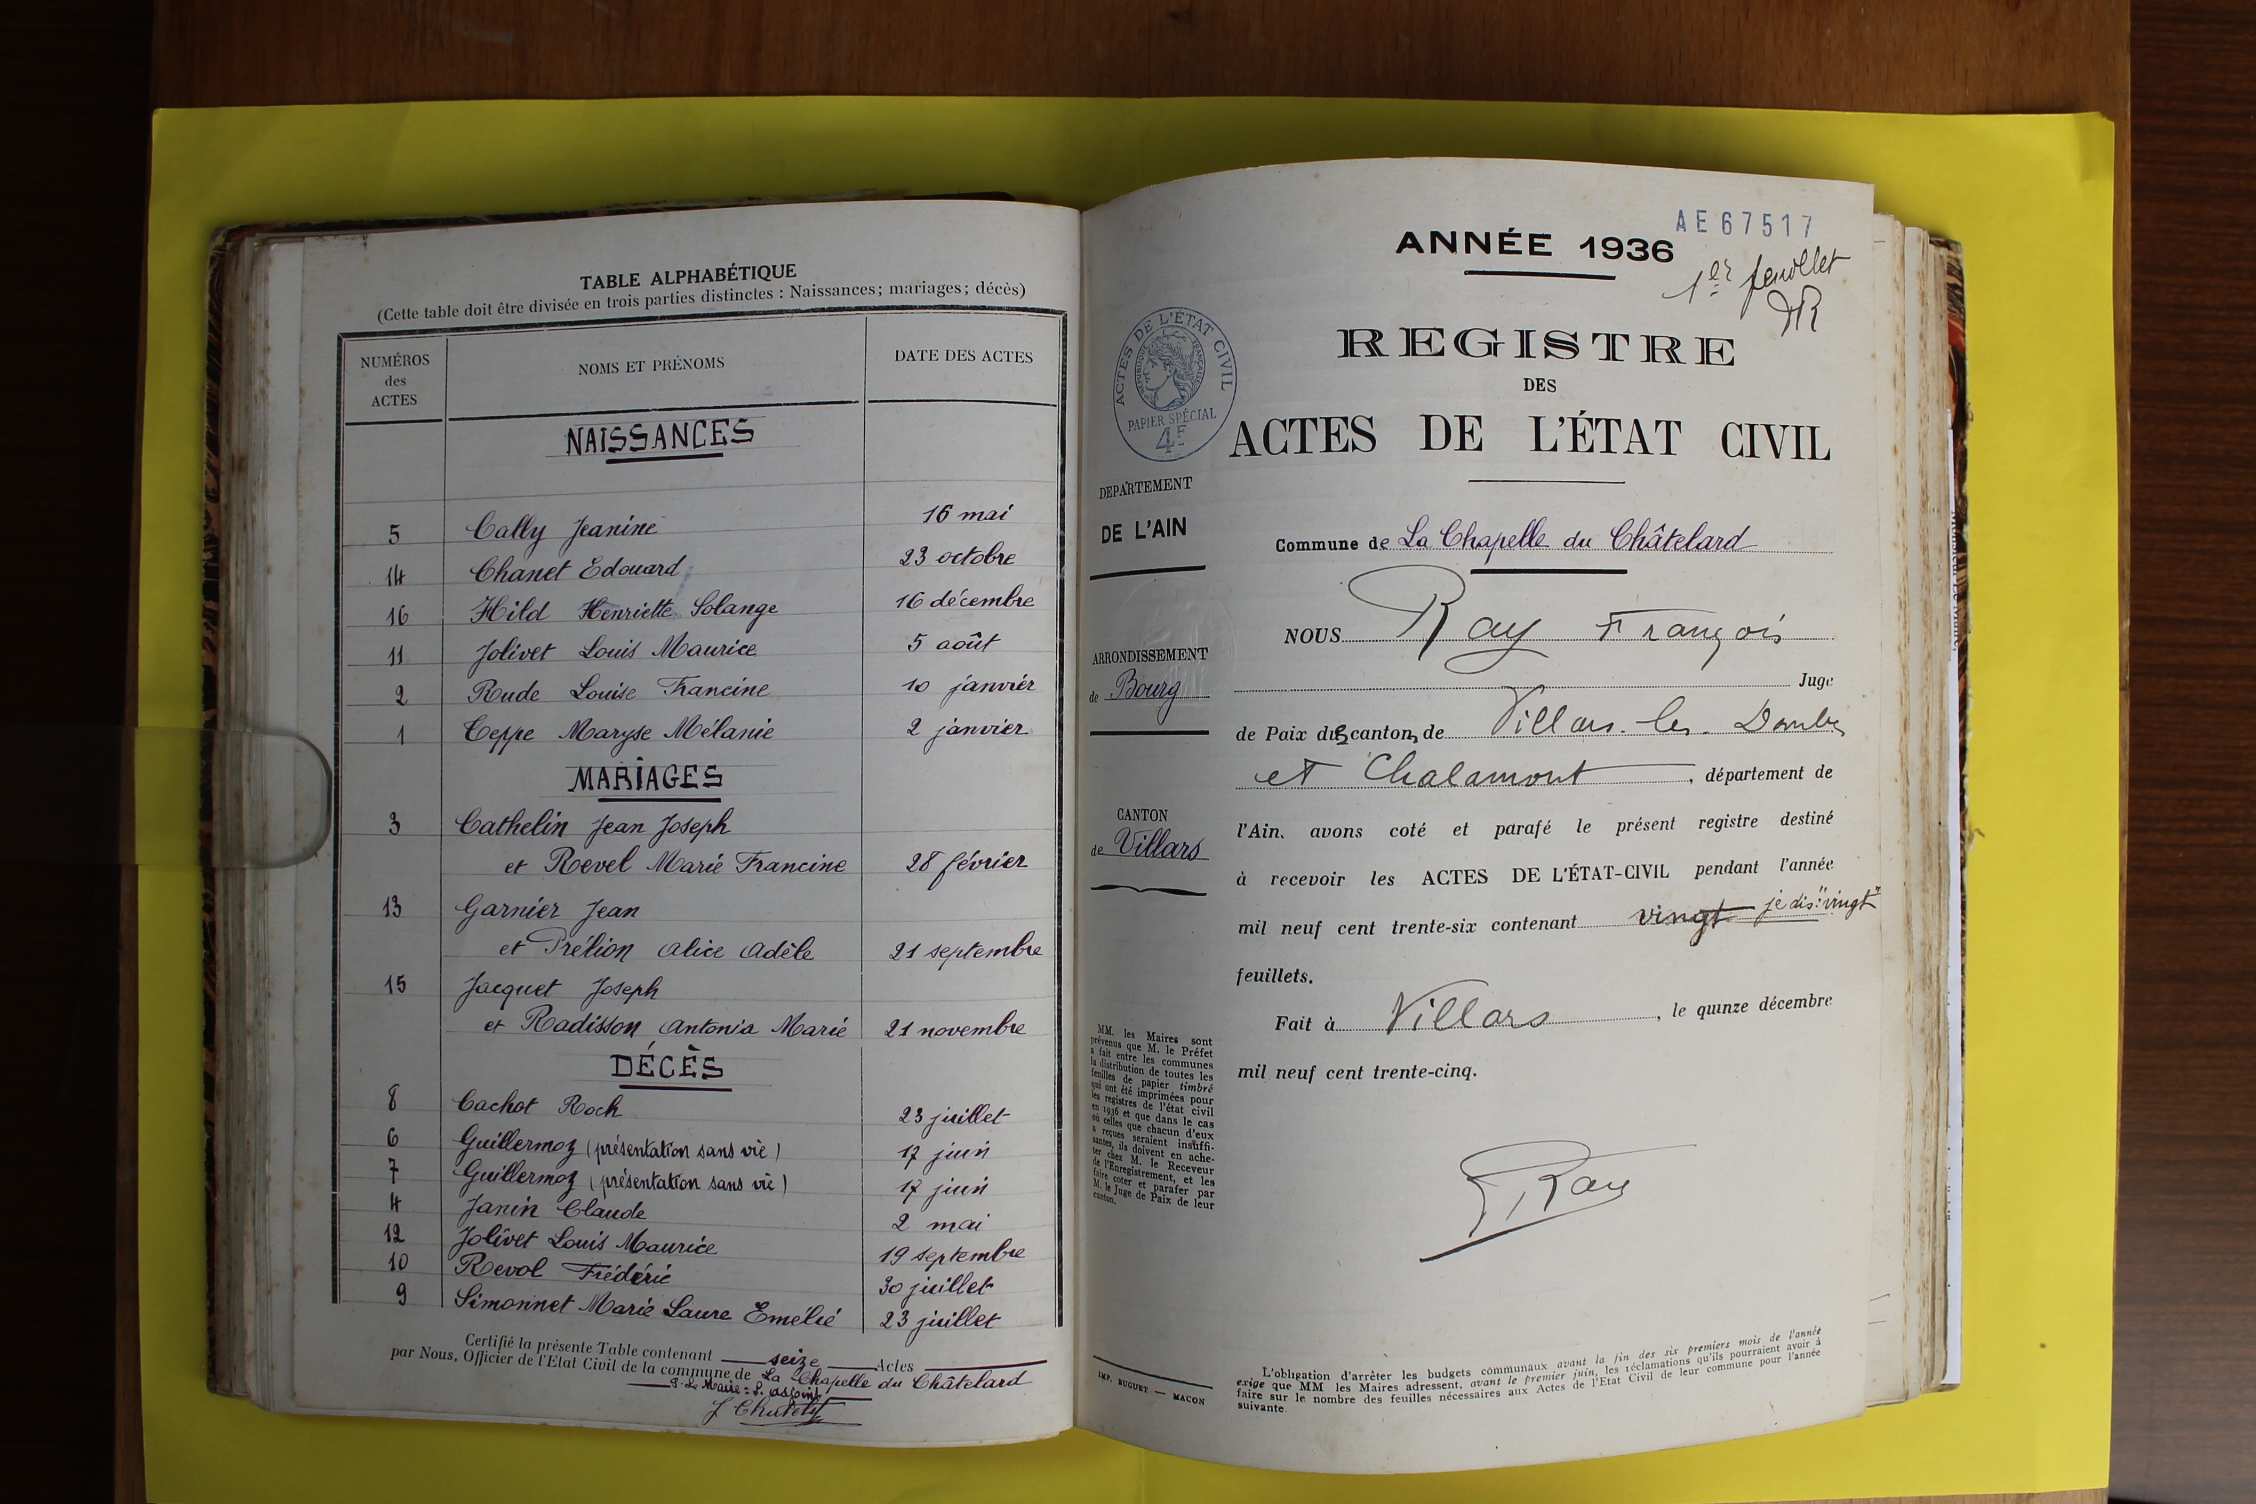 TABLE ALPHABÉTIQUE
(Cette table doit être divisée en trois parties distinctes : Naissances; mariages; décès)
NUMÉROS des ACTES NOMS ET PRÉNOMS DATE DES ACTES
NAISSANCES
5 Cally Jeanine 16 mai
14 Chanet Edouard 23 octobre
16 Hild Henriette Solange 16 décembre
11 Jolivet Louis Maurice 5 août
2 Rude Louise Francine 10 janvier
1 Teppe Maryse Mélanie 2 janvier
MARIAGES
3 Cathelin Jean Joseph
et Revel Marie Francine 28 février
13 Garnier Jean
et Prélion Alice Adèle 21 septembre
15 Jacquet Joseph
et Radisson Antonia Marie 21 novembre
DÉCÈS
8 Cachot Roch 23 juillet
6 Guillermoz (présentation sans vie) 17 juin
7 Guillermoz (présentation sans vie) 17 juin
4 Janin Claude 2 mai
12 Jolivet Louis Maurice 19 septembre
10 Revol Frédéric 30 juillet
9 Simonnet Marie Laure Emélie 23 juillet
Certifié la présente Table contenant seize Actes
par Nous, Officier de l'Etat Civil de la commune de La Chapelle du Châtelard
Maire
AE67517
ANNÉE 1936
1er feuillet
REGISTRE
DES
ACTES DE L'ÉTAT CIVIL
ACTES DE L'ÉTAT CIVIL
RÉPUBLIQUE FRANÇAISE
PAPIER SPÉCIAL
4F
DEPARTEMENT
DE L'AIN
ARRONDISSEMENT
de Bourg
CANTON
de Villars
MM. les Maires sont
prévenus que M. le Préfet
a fait entre les communes
la distribution de toutes les
feuilles de papier timbré
qui ont été imprimées pour
les registres de l'état civil
en 1936 et que dans le cas
où celles que chacun d'eux
a reçues seraient insuffi-
santes, ils doivent en ache-
ter chez M. le Receveur
de l'Enregistrement, et les
faire coter et parafer par
M. le Juge de Paix de leur
canton.
IMP. BUGUET — MACON
Commune de La Chapelle du Châtelard
NOUS Ray François
Juge
de Paix des cantons de Villars-les-Dombes
et Chalamont, département de
l'Ain, avons coté et parafé le présent registre destiné
à recevoir les ACTES DE L'ÉTAT-CIVIL pendant l'année
mil neuf cent trente-six contenant vingt je dis "vingt"
feuillets.
Fait à Villars, le quinze décembre
mil neuf cent trente-cinq.
Ray
L'obligation d'arrêter les budgets communaux avant la fin des six premiers mois de l'année
exige que MM les Maires adressent, avant le premier juin, les réclamations qu'ils pourraient avoir à
faire sur le nombre des feuilles nécessaires aux Actes de l'Etat Civil de leur commune pour l'année
suivante.